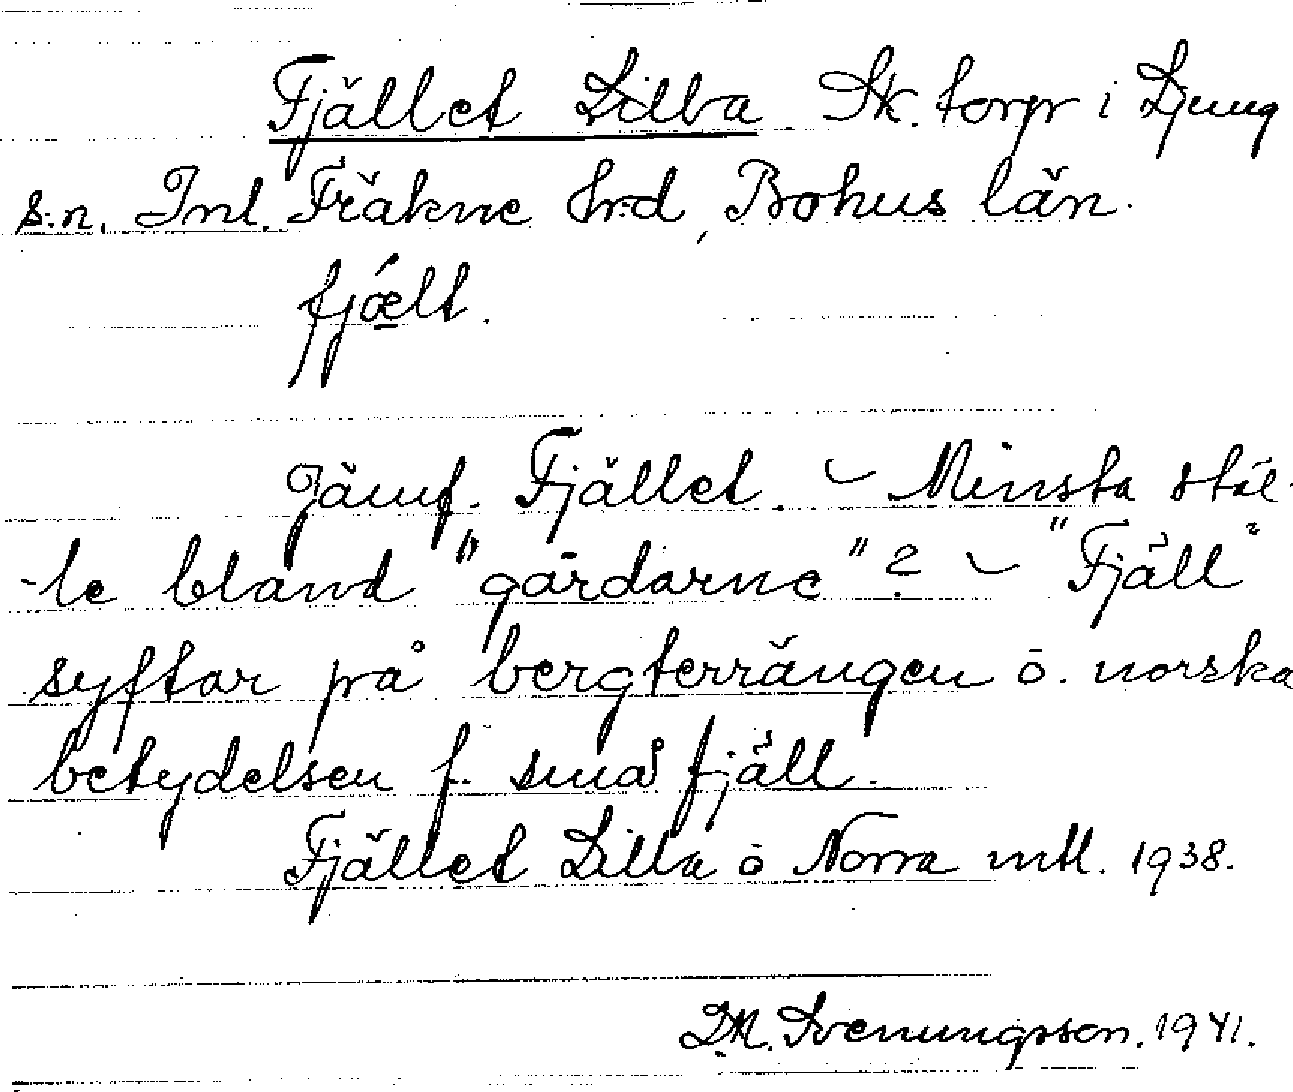 Fjället Lilla Sk. torp i Ljung
s:n. Inl. Fräkne hrd, Bohus län.
fjælt.
Jämf. Fjället. ~ Minsta stäl-
-le bland "gårdarne"? ~ "Fjäll"
syftar på bergterrängen o. norska
betydelsen f. små fjäll.
Fjället Lilla o Norra mtl. 1938.
D.M. Svenungsson. 1941.